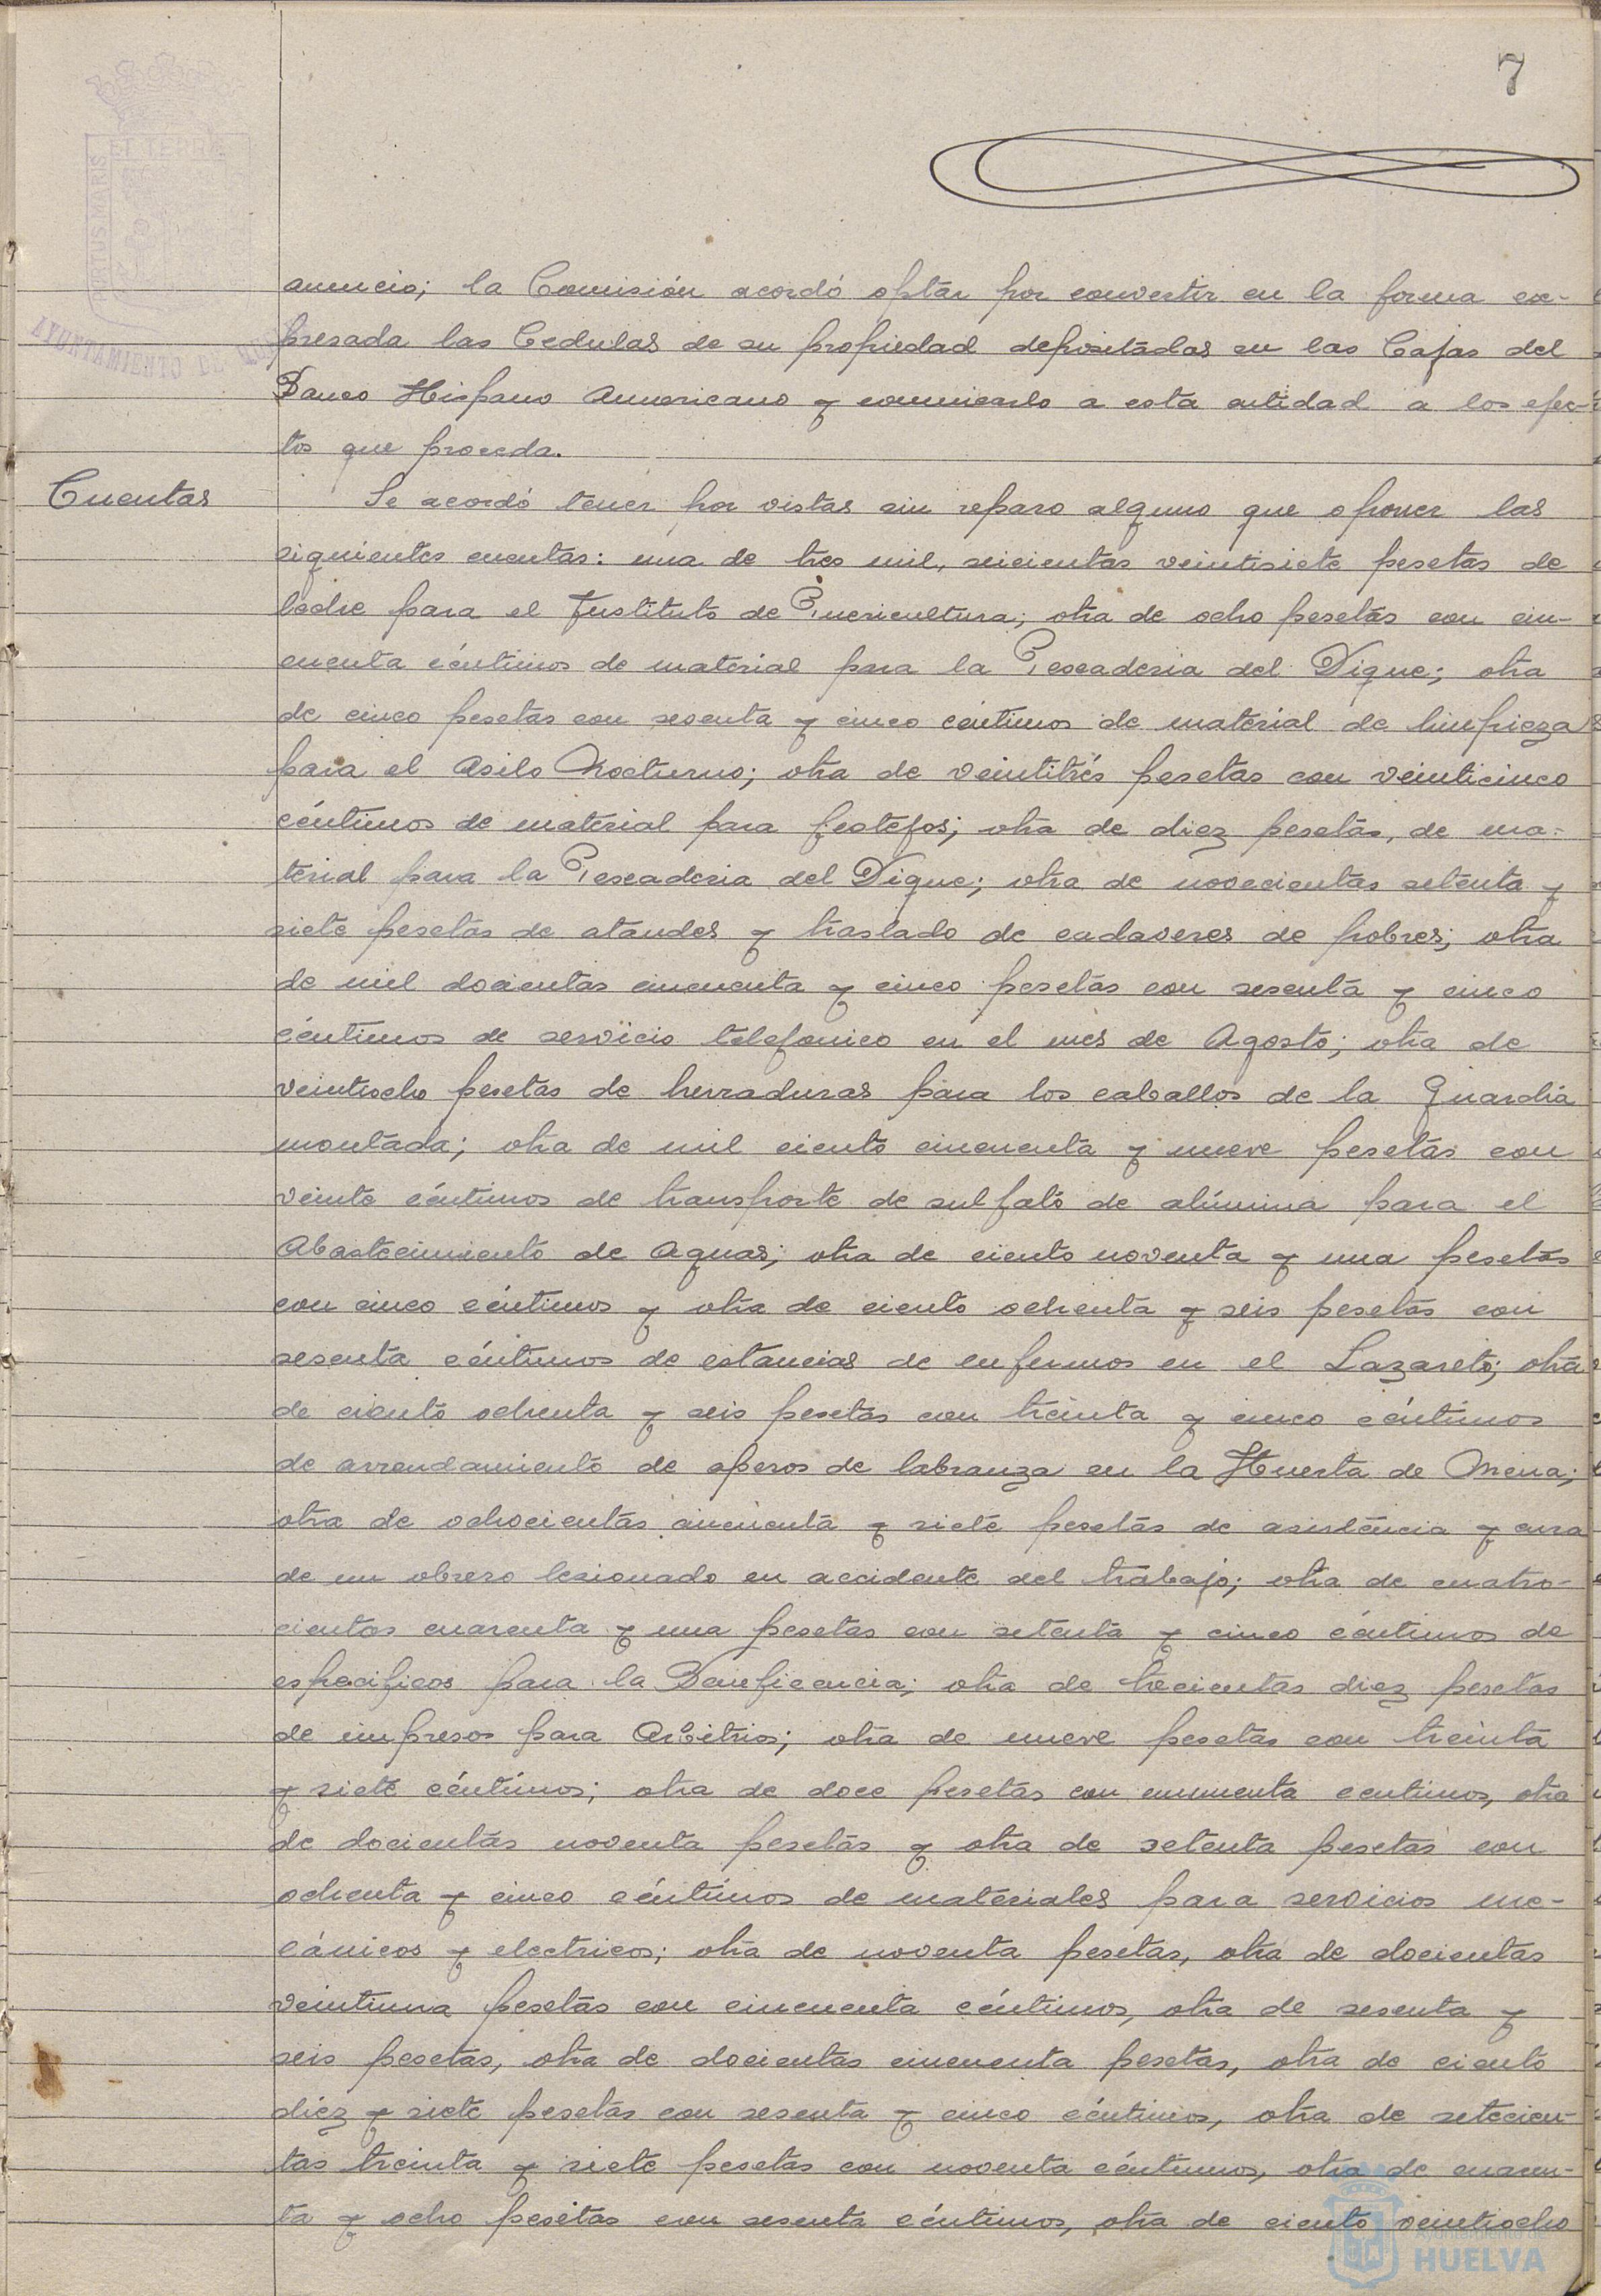 7
PORTUS MARIS
ET TERRE
AYUNTAMIENTO DE
anuncio; la Comisión acordó optar por convertir en la forma ex-
presada las Cedulas de su propiedad depositadas en las Cajas del
Banco Hispano Americano y comunicarlo a esta entidad a los efec-
tos que proceda.
Cuentas
Se acordó tener por vistas sin reparo alguno que oponer las
siguientes cuentas: una de tres mil, seicientas veintisiete pesetas de
leche para el Instituto de Puericultura; otra de ocho pesetas con cin-
cuenta céntimos de material para la Pescaderia del Dique; otra
de cinco pesetas con sesenta y cinco céntimos de material de limpieza
para el Asilo Nocturno; otra de veintitrés pesetas con veinticinco
céntimos de material para festejos; otra de diez pesetas, de ma-
terial para la Pescaderia del Dique; otra de novecientas setenta y
siete pesetas de ataudes y traslado de cadaveres de pobres; otra
de mil docientas cincuenta y cinco pesetas con sesenta y cinco
céntimos de servicio telefonico en el mes de Agosto; otra de
veintiocho pesetas de herraduras para los caballos de la Guardia
montada; otra de mil ciento cincuenta y nueve pesetas con
veinte céntimos de transporte de sulfato de alúmina para el
Abastecimiento de Aguas; otra de ciento noventa y una pesetas
con cinco céntimos y otra de ciento ochenta y seis pesetas con
sesenta céntimos de estancias de enfermos en el Lazareto; otra
de ciento ochenta y seis pesetas con treinta y cinco céntimos
de arrendamiento de aperos de labranza en la Huerta de Mena;
otra de ochocientas cincuenta y siete pesetas de asistencia y cura
de un obrero lesionado en accidente del trabajo; otra de cuatro-
cientas cuarenta y una pesetas con setenta y cinco céntimos de
especificos para la Beneficencia; otra de trecientas diez pesetas
de impresos para Arbitrios; otra de nueve pesetas con treinta
y siete céntimos; otra de doce pesetas con cincuenta centimos, otra
de docientas noventa pesetas y otra de setenta pesetas con
ochenta y cinco céntimos de materiales para servicios me-
cánicos y electricos; otra de noventa pesetas, otra de docientas
veintiuna pesetas con cincuenta céntimos, otra de sesenta y
seis pesetas, otra de docientas cincuenta pesetas, otra de ciento
diez y siete pesetas con sesenta y cinco céntimos, otra de setecien-
tas treinta y siete pesetas con noventa céntimos, otra de cuaren-
ta y ocho pesetas con sesenta céntimos, otra de ciento veintiocho
HUELVA